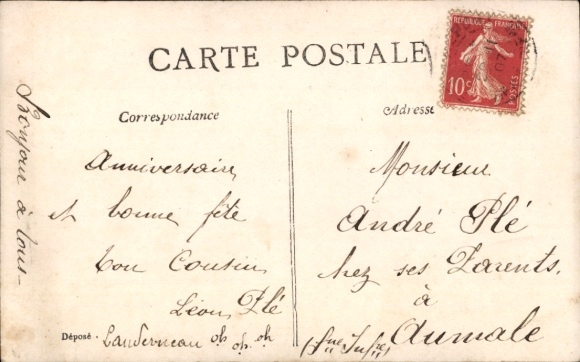 CARTE POSTALE
REPUBLIQUE FRANÇAISE
10c
POSTES
Correspondance
Adresse
Bonjour à tous
Anniversaire
et bonne fête
ton Cousin
Léon Plé
Déposé
Landerneau oh oh oh
Monsieur
André Plé
chez ses Parents.
à
Aumale
(Sne Infre)